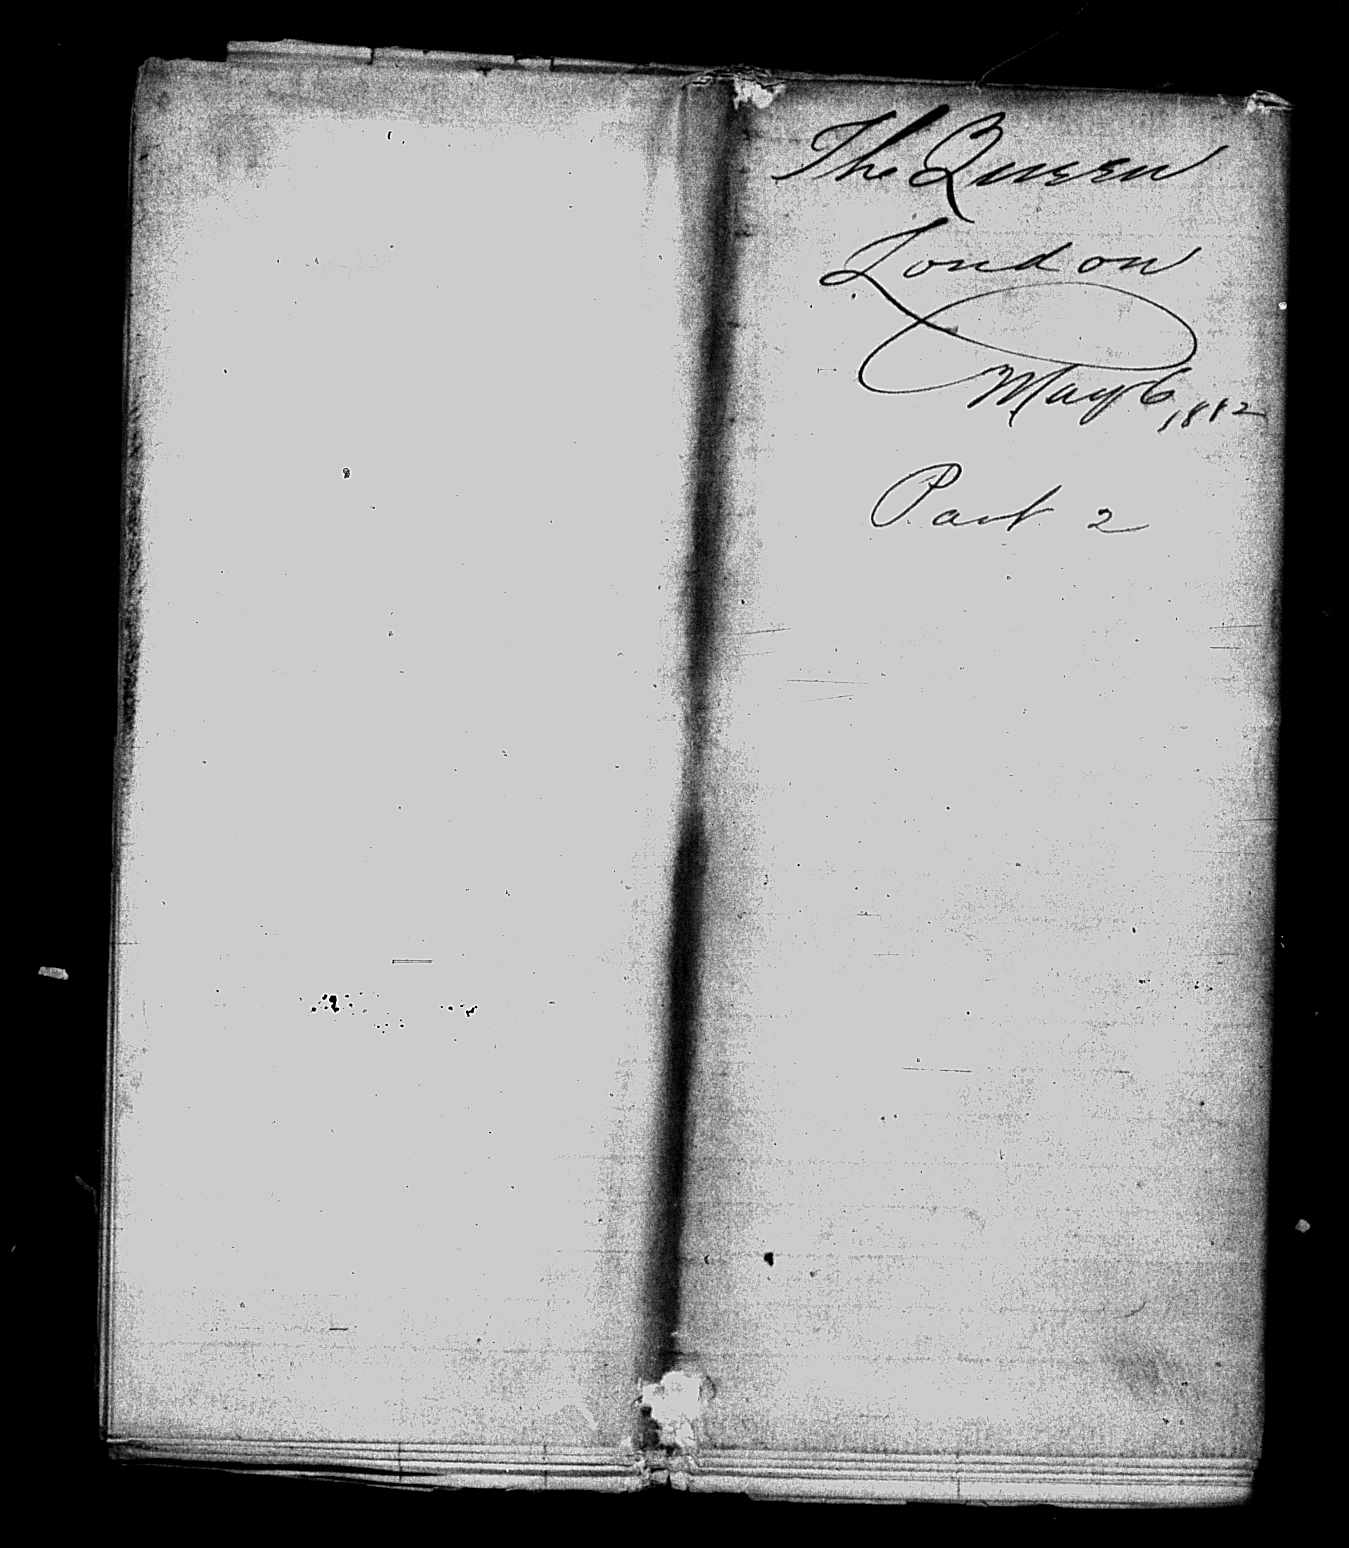 The Queen
London
May 6, 1882
Part 2